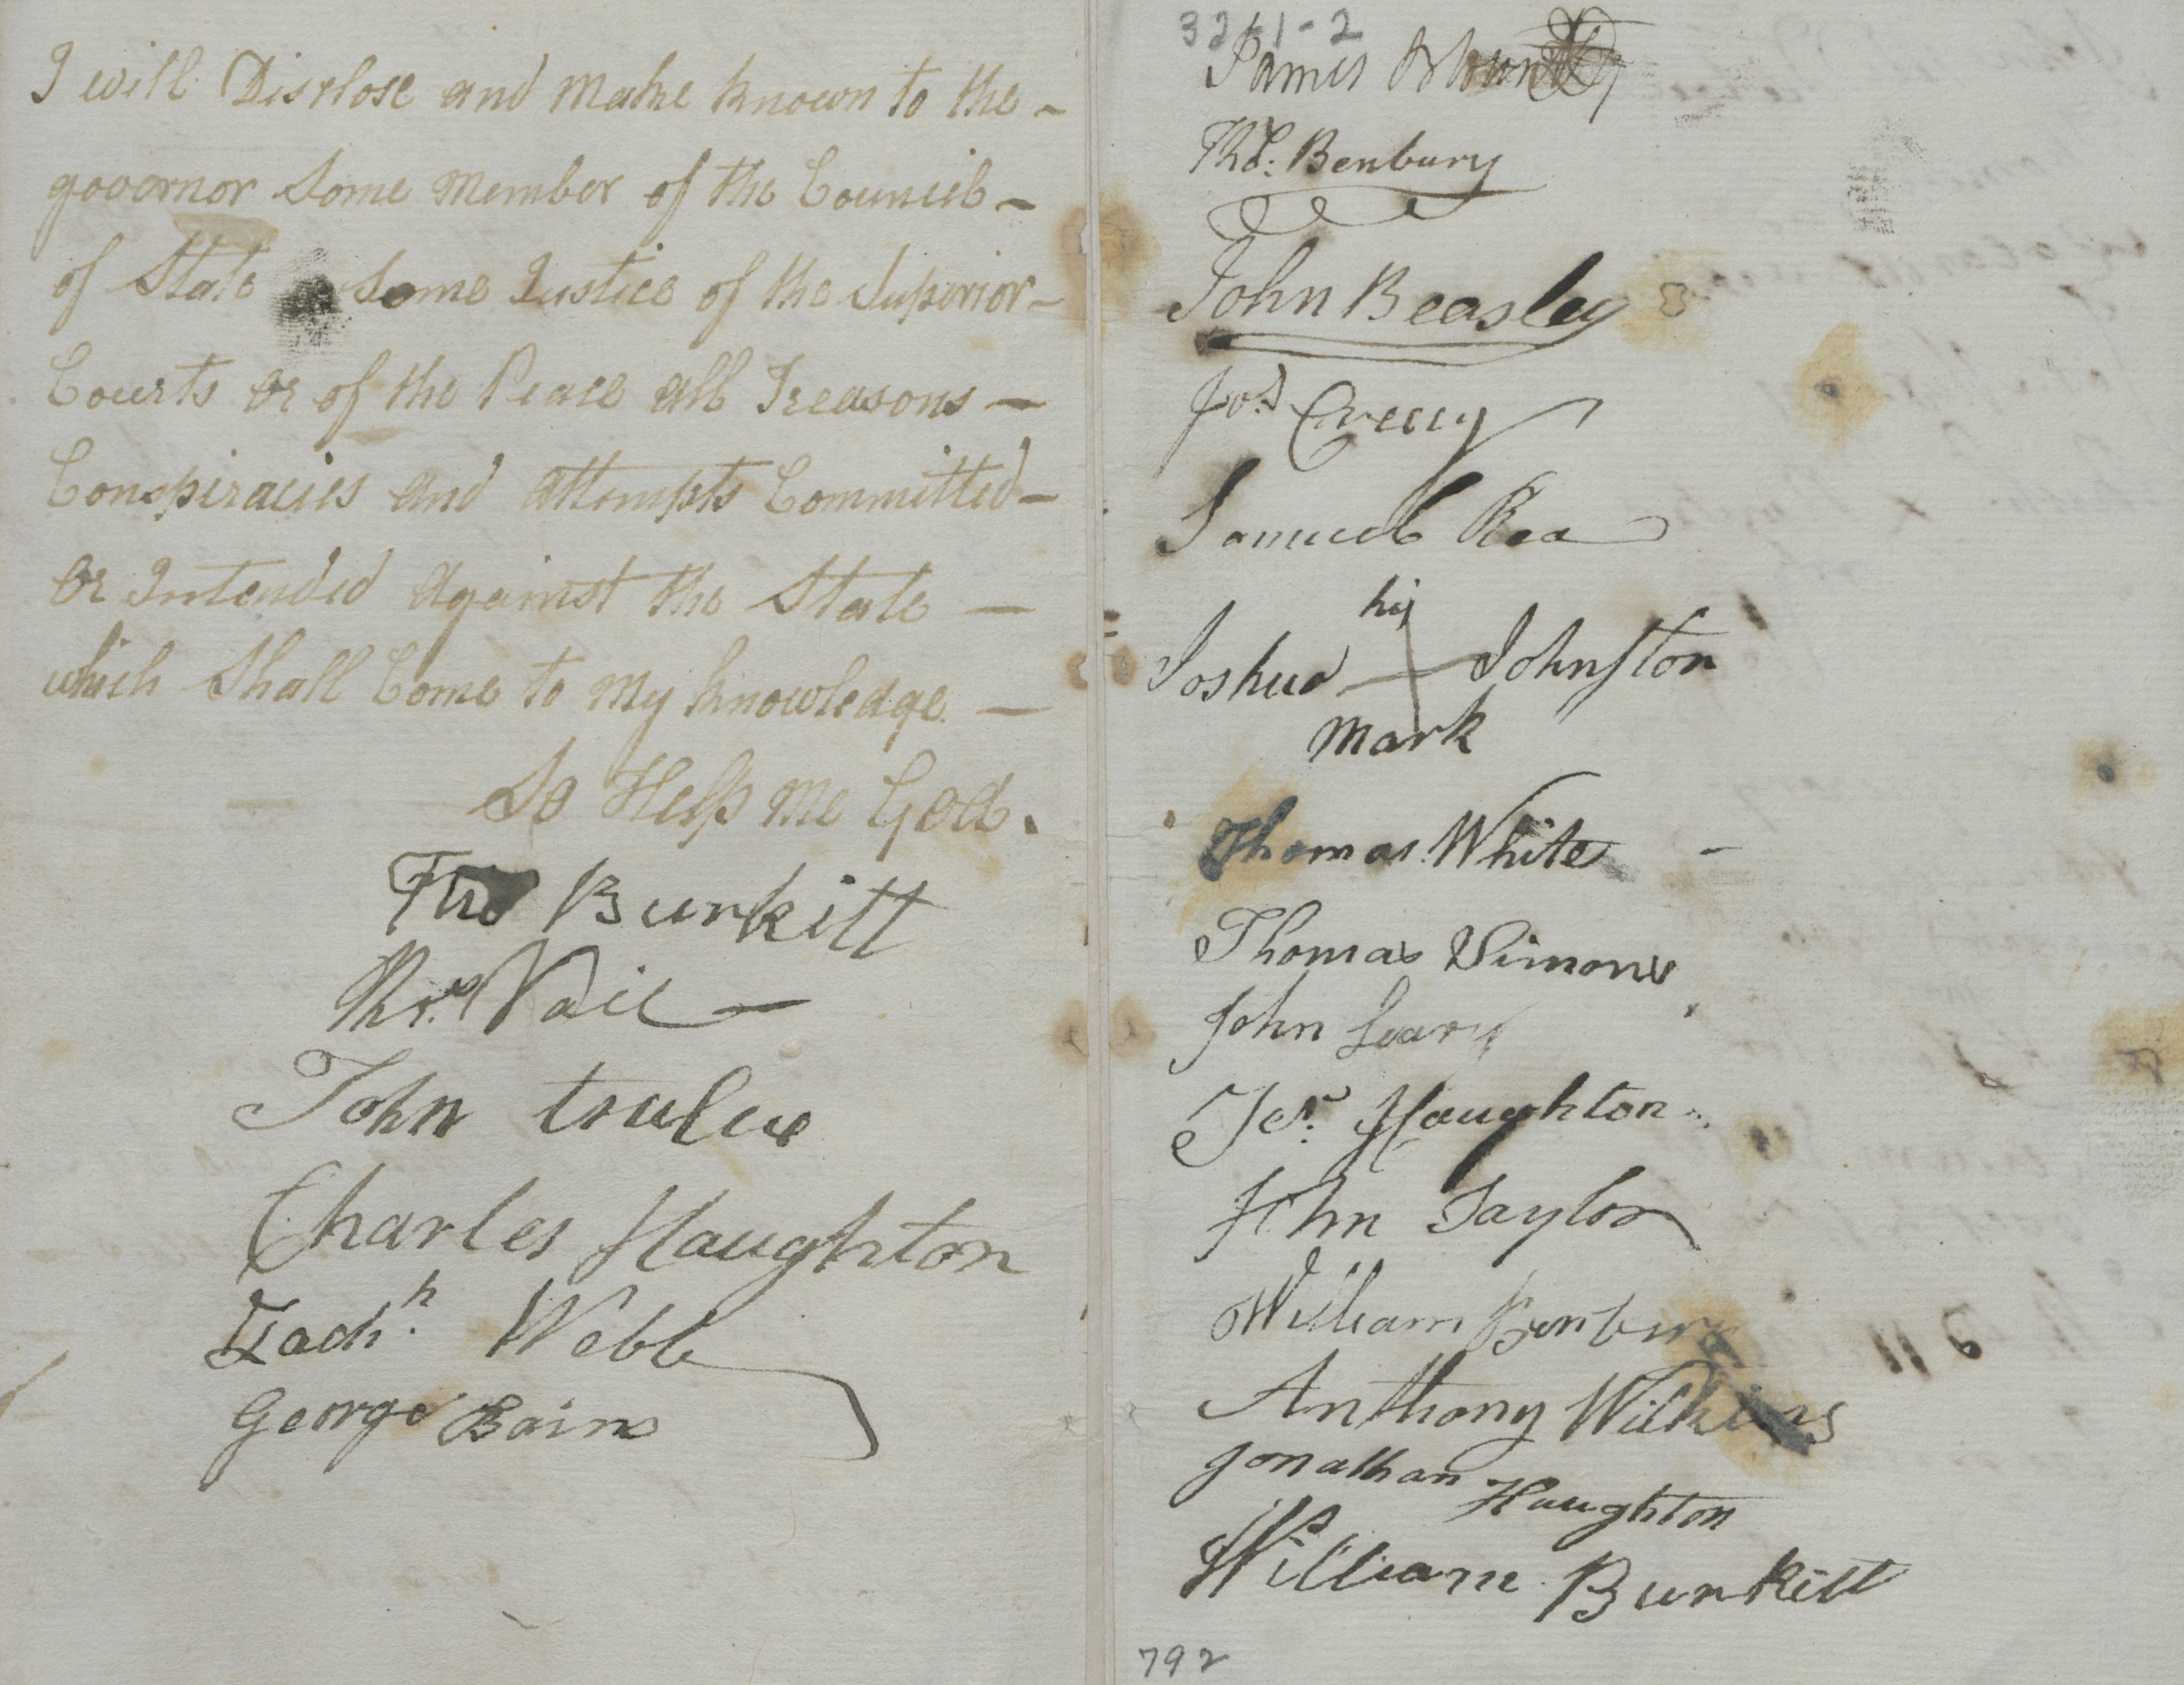 I will Disclose and make known to the -
governor some member of the Council -
of State some Justice of the Superior -
Courts or of the Peace all Treasons -
Conspiracies and attempts Committed -
or Intended against the State -
which Shall Come to my knowledge -
So Help me God.
Burkitt
Thos. Vail
John trulue
Charles Haughton
Zach.h Webb
George Bains
3261-2
James Blount
Tho.s Benbury
John Beasley
Jos. Creecy
Samuel Rea
his
Joshua Johnston
mark
Thomas White -
Thomas Simons
John Leary
Jer. Haughton
John Taylor
William Benbury
Anthony Wilkins
Jonathan Haughton
William Burkitt
792